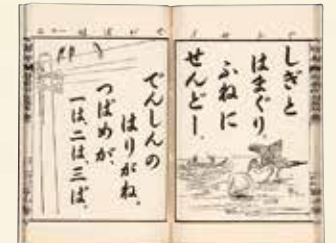 しぎと
はまぐり。
ふねに
せんどー。
でんしんの
はりがね。
つばめが、
一は、二は、三ば、